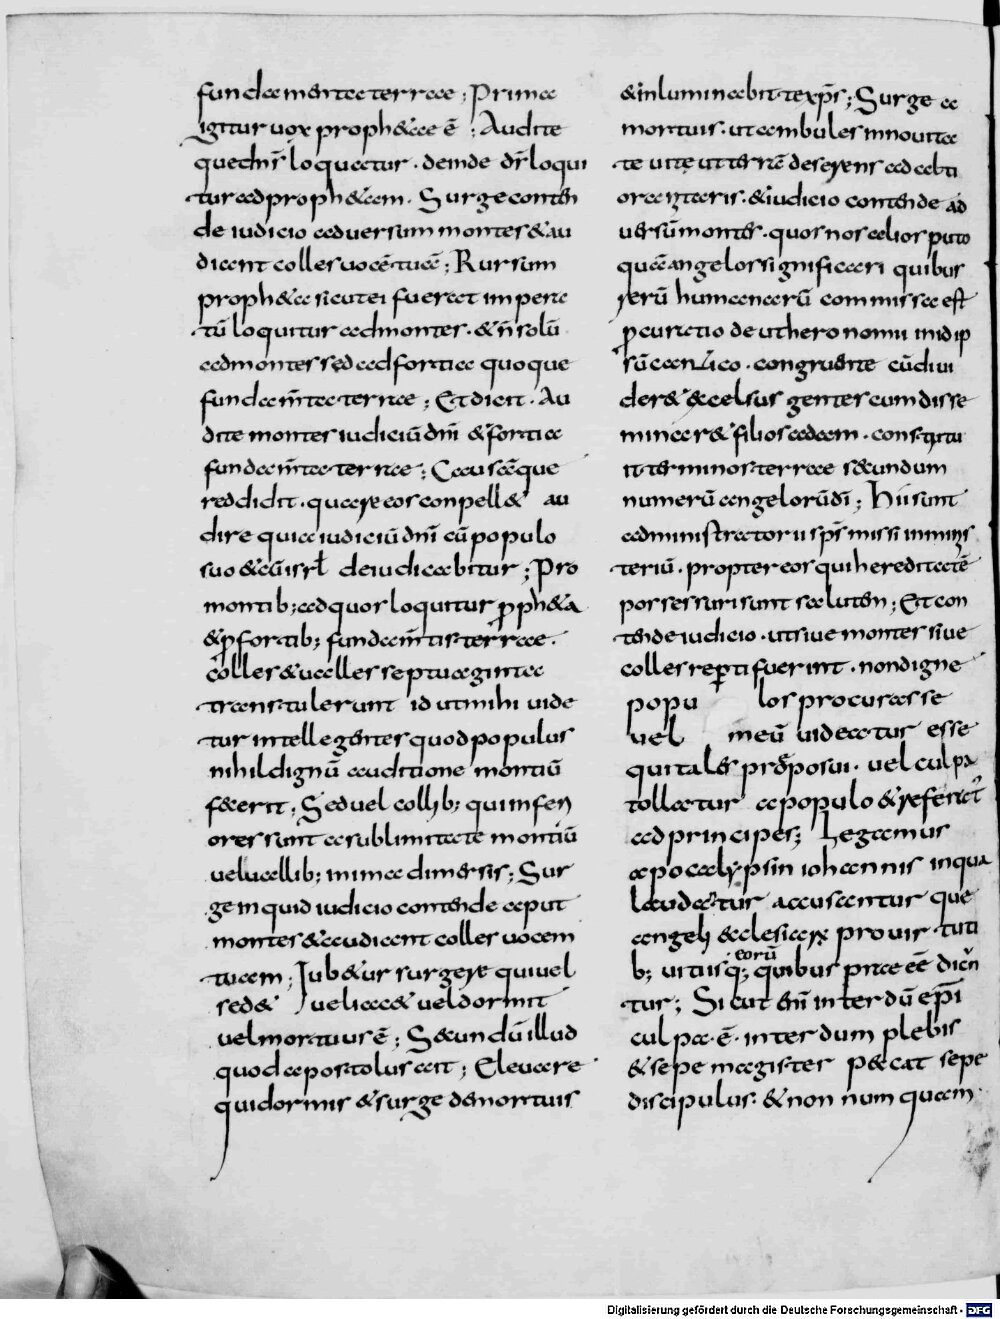 fundamenta terrae; Prima
igitur vox prophetae ē; Audite
que dn̄s loquetur. deinde dn̄s loqui
tur ad prophetam. Surge conten
de iudicio adversum montes & au
diant colles vocē tuā; Rursum
propheta sicut ei fuerat impera
tū loquitur ad montes. & n̄ solū
ad montes sed ad fortia quoque
fundam̄ta terrae; Et dicit. Au
dite montes iudiciū dn̄i & fortia
fundam̄ta terrae; Causāque
reddidit. quare eos conpellet au
dire quia iudiciū dn̄i cū populo
suo & cū isrl̄ deiudicabitur; Pro
montib; ad quos loquitur p̄pheta
& p̄ fortib; fundam̄tis terrae.
colles & valles septuaginta
transtulerunt id ut mihi vide
tur intellegentes quod populus
nihil dignū auditione montiū
fecerit. Sed vel collib; qui inferi
ores sunt a sublimitate montiū
vel vallib; in ima dimersis; Sur
ge inquid iudicio contende aput
montes & audiant colles vocem
tuam; Iubetur surgere qui vel
sedet vel iacet vel dormit
vel mortuus ē; Secundū illud
quod apostolus ait; Elevare
qui dormis & surge de mortuis
& inluminabit te xp̄s; Surge a
mortuis. ut ambules in novita
te vite ut terrē deserens ad cebti
ora igtaris. & iudicio contende ad
versū montes. quos nos alios puto
quā angelos significari quibus
rerū humanarū commissa est
p̄curatio deutheronomii in id ip
sū cantico. congruente cū divi
deret excelsus gentes cum disse
minaret filios adam. constitu
it terminos terrae secundum
numerū angelorū dī; Hii sunt
administratorii sps̄ missi in minis
teriū. propter eos qui hereditatē
possessuri sunt salutem; Et con
tende iudicio. ut sive montes sive
colles rep̄ti fuerint. non digne
popu los procurasse
vel meū videatur esse
qui tales preposui. vel culpa
tollatur a populo & referat̄
ad principes; Legamus
apocalypsin iohannis in qua
laudatur accusantur que
angeli ecclesiarū pro virtuti
b; vitiisq; eorū quibus praeeē dicn̄
tur; Sicut enī interdū ep̄i
culpa. ē. interdum plebis
& sepe magister peccat sepe
discipulus. & non numquam